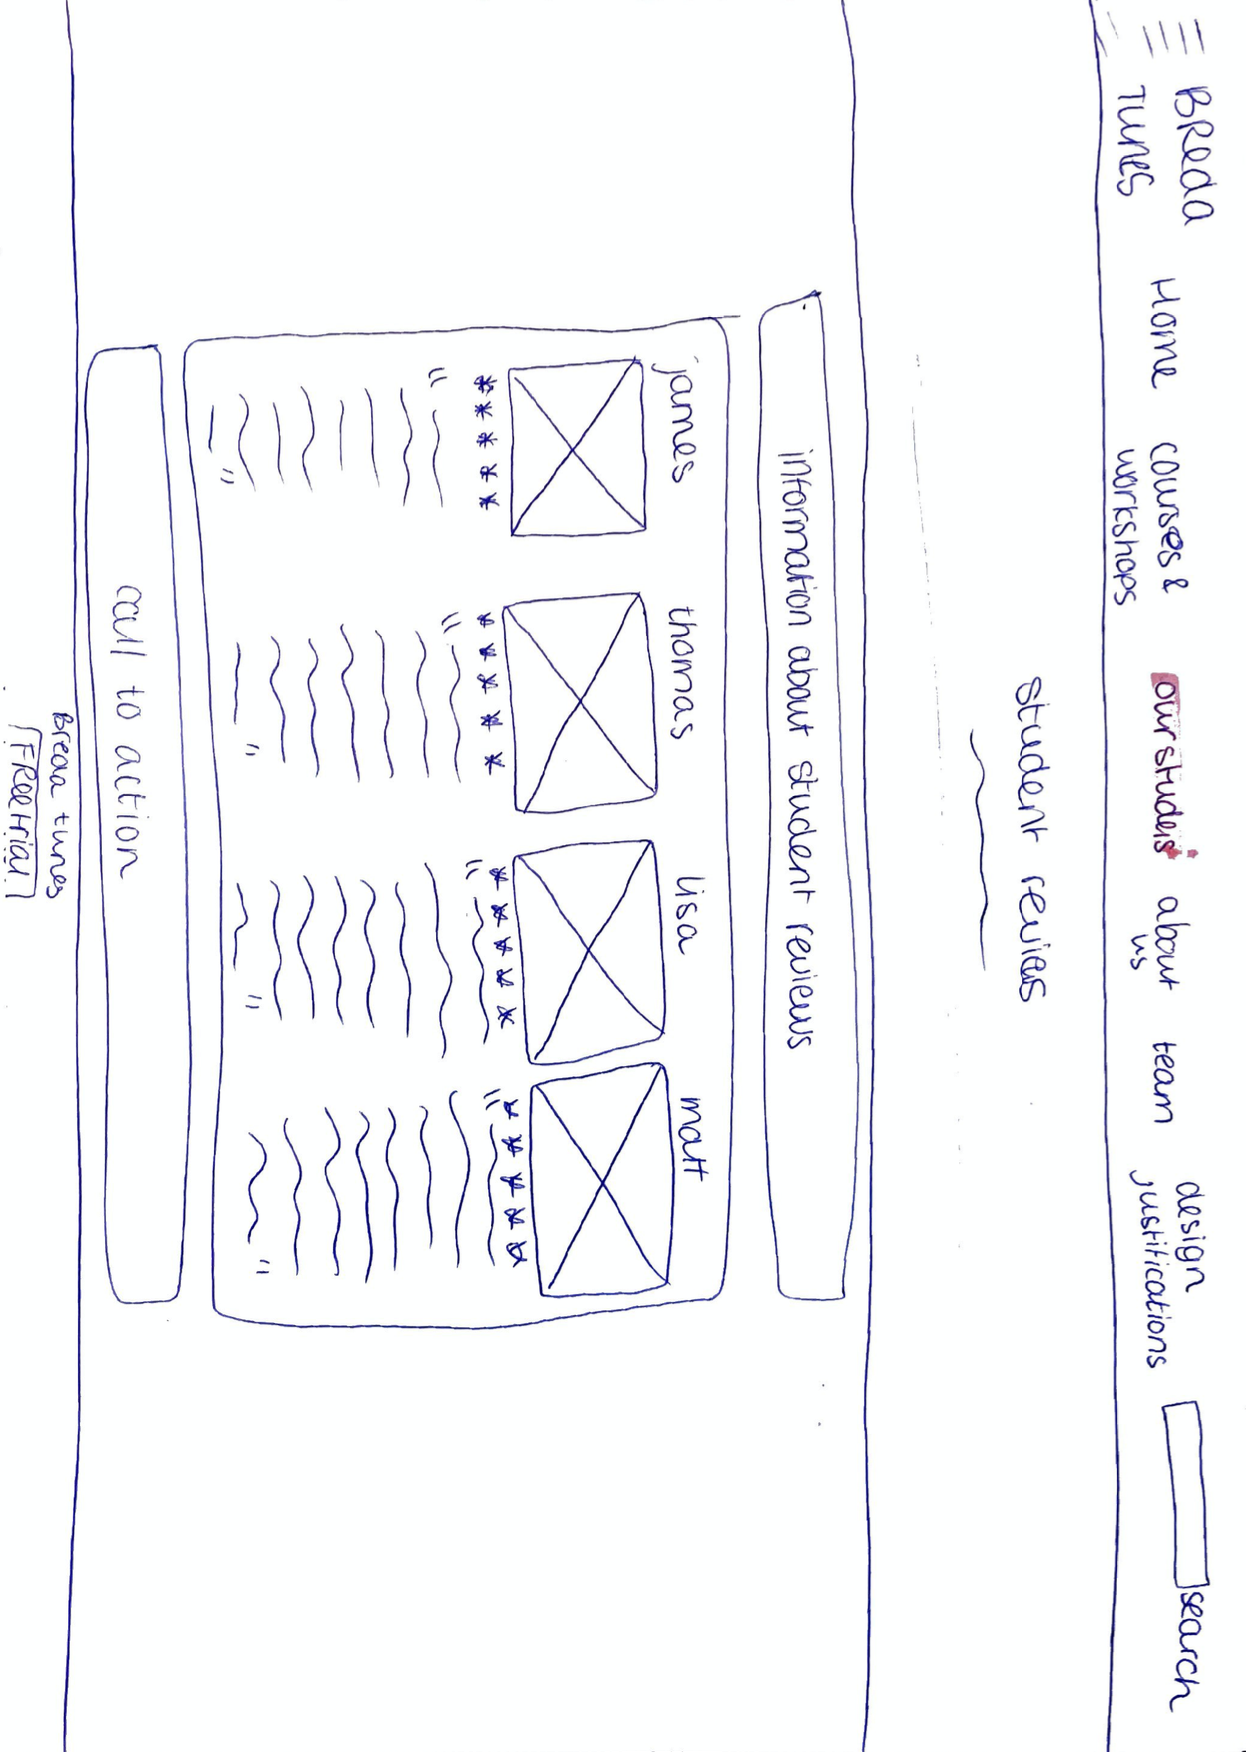 BReda
TUNES
Home
courses &
workshops
our studets
about
us
team
design
justifications
search
student reviews
information about student reviews
james
thomas
lisa
matt
* * * * *
* * * * *
* * * * *
* * * * *
call to action
Breda tunes
FRee trial